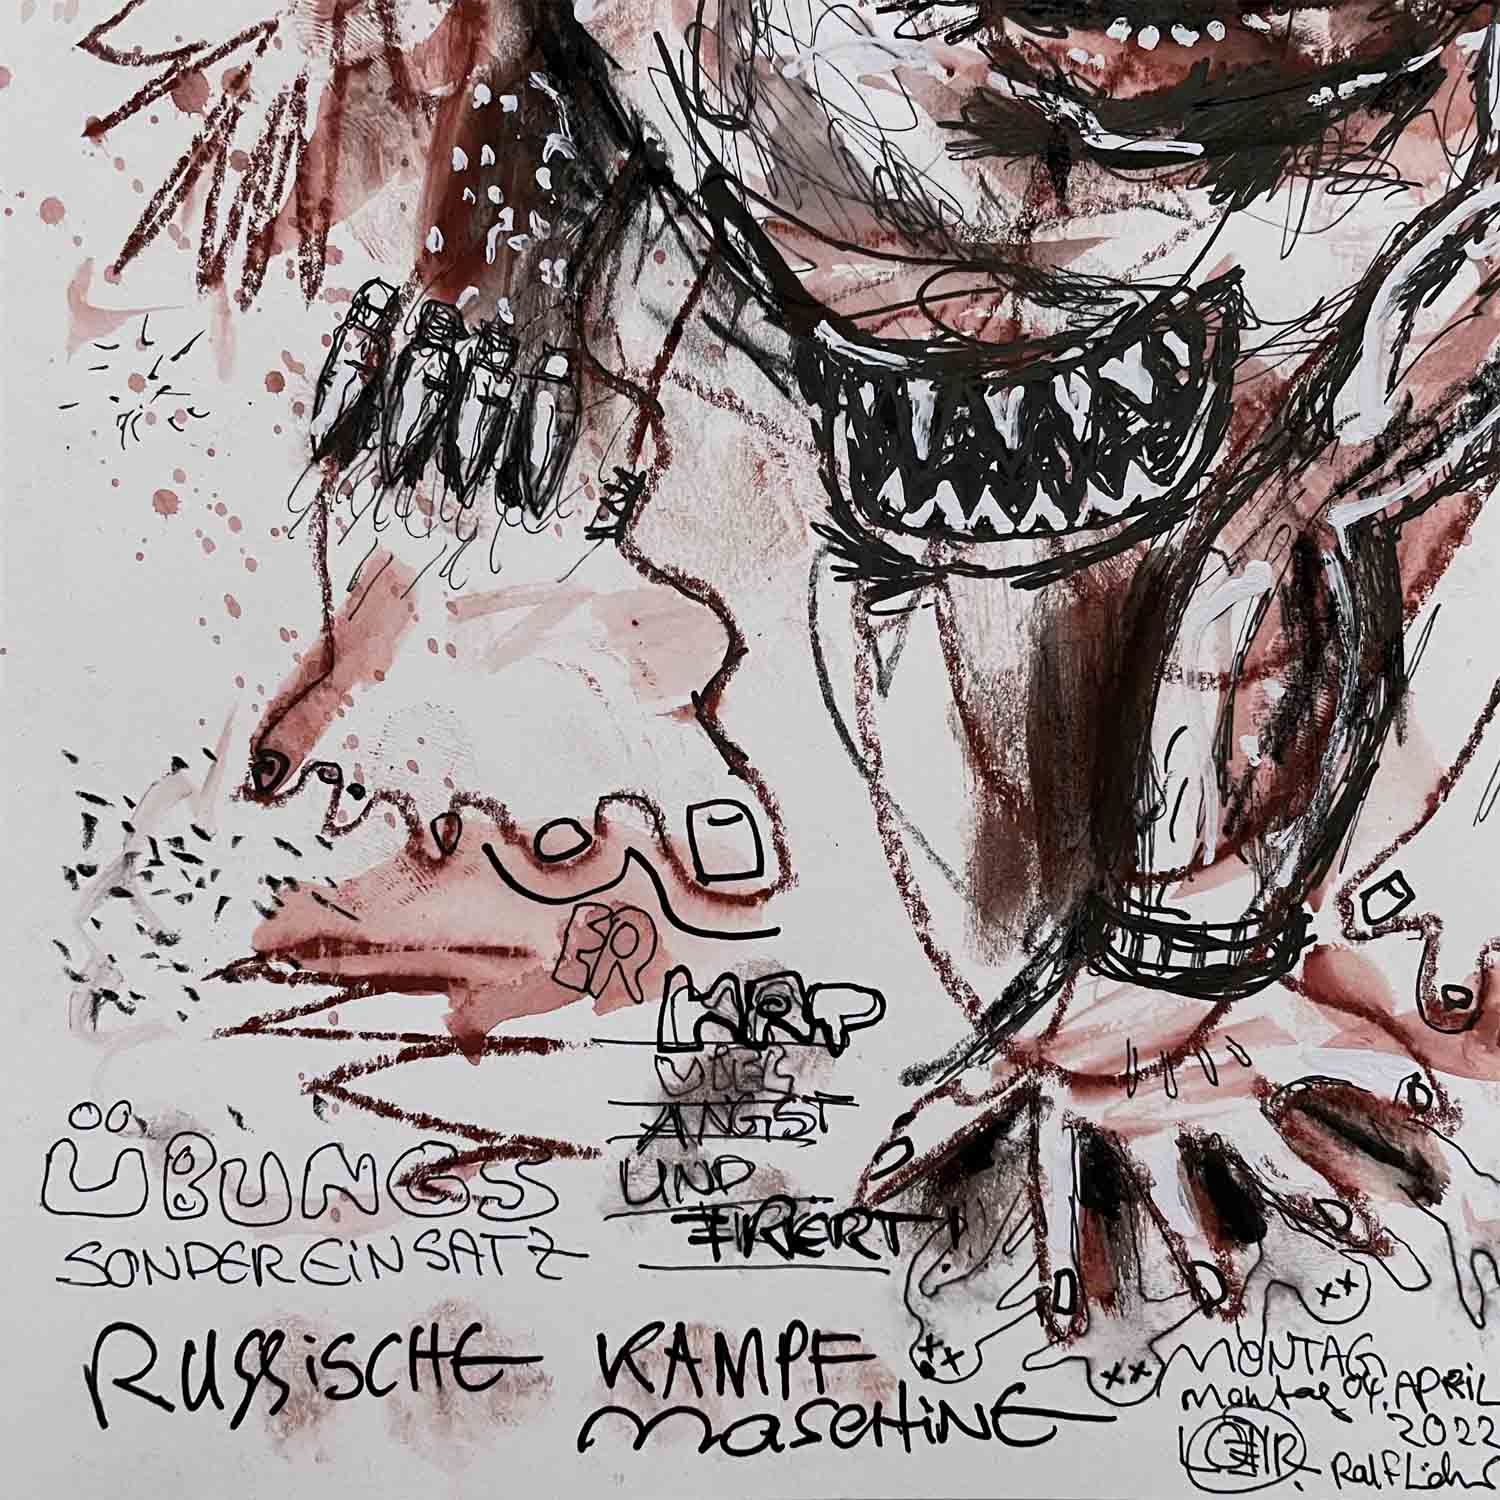 ER
HAT
VIEL
ANGST
UND
FRIERT!
ÜBUNGS
SONDEREINSATZ
RUSSISCHE KAMPF
MASCHINE
MONTAG
Montag 04. APRIL
2022
Ralf